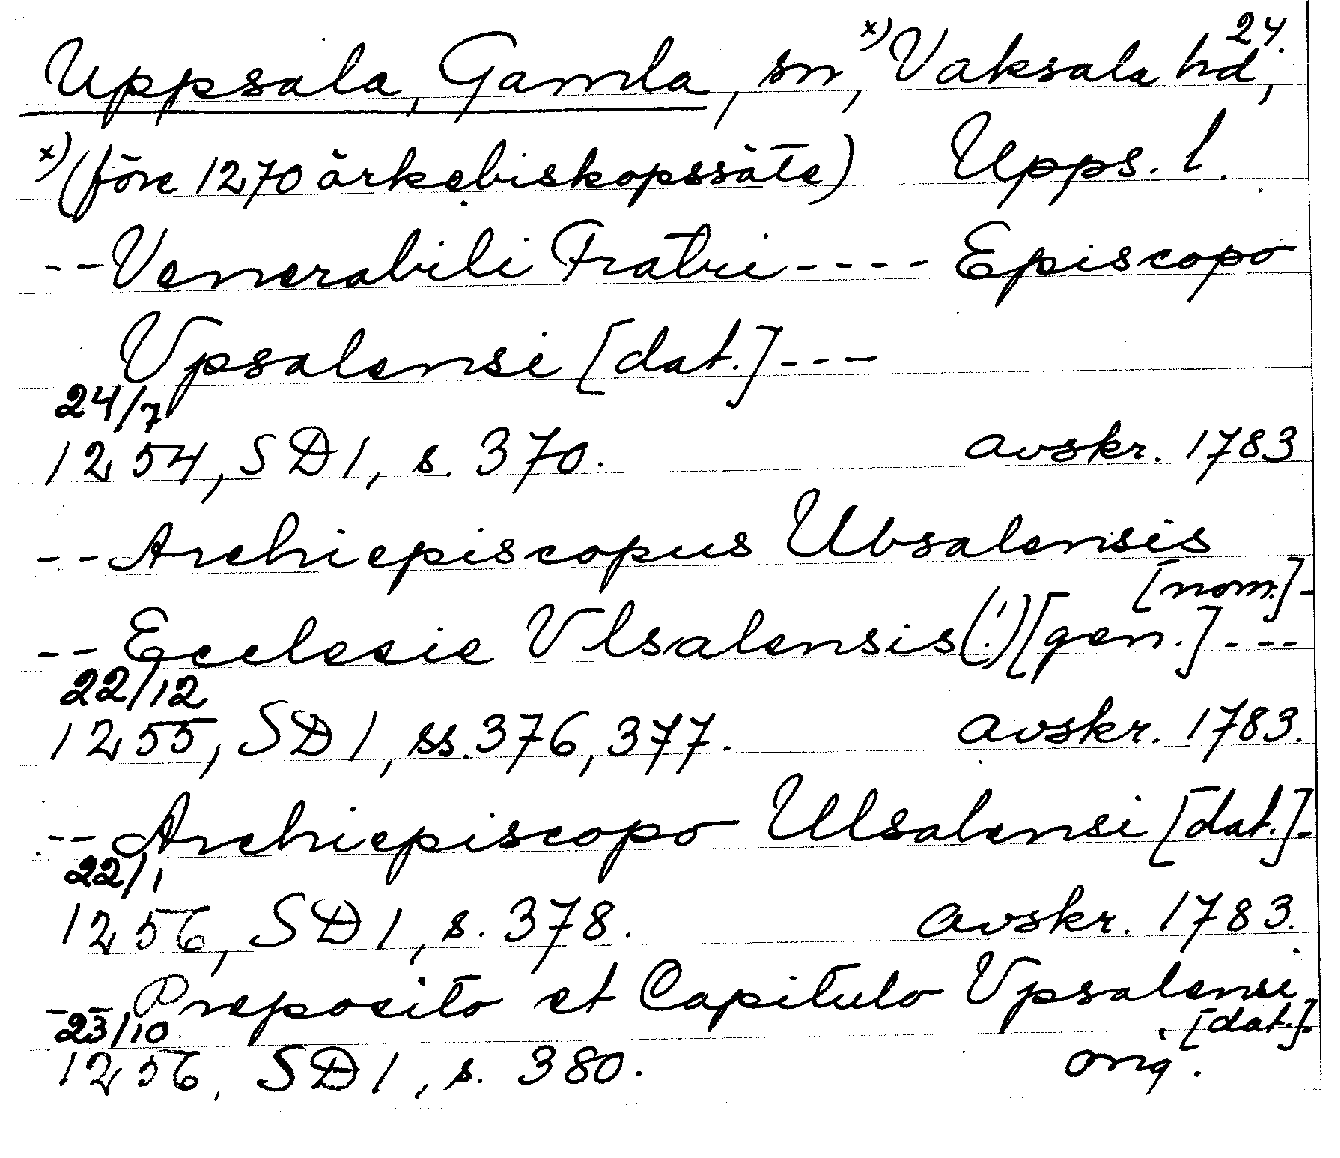 24.
Uppsala, Gamla, sn, x) Vaksala hd,
x) (före 1270 ärkebiskopssäte) Upps. l.
-- Venerabili Fratri ---- Episcopo
Vpsalensi [dat.] ---
24/7
1254, SD 1, s. 370. avskr. 1783
-- Archiepiscopus Ubsalensis
[nom.]-
-- Ecclesie Vlsalensis (!) [gen.] ---
22/12
1255, SD 1, ss. 376, 377. avskr. 1783.
-- Archiepiscopo Ulsalensi [dat.]-
22/1
1256, SD 1, s. 378. avskr. 1783.
-- Preposito et Capitulo Vpsalensi
23/10 [dat.].
1256, SD 1, s. 380. orig.